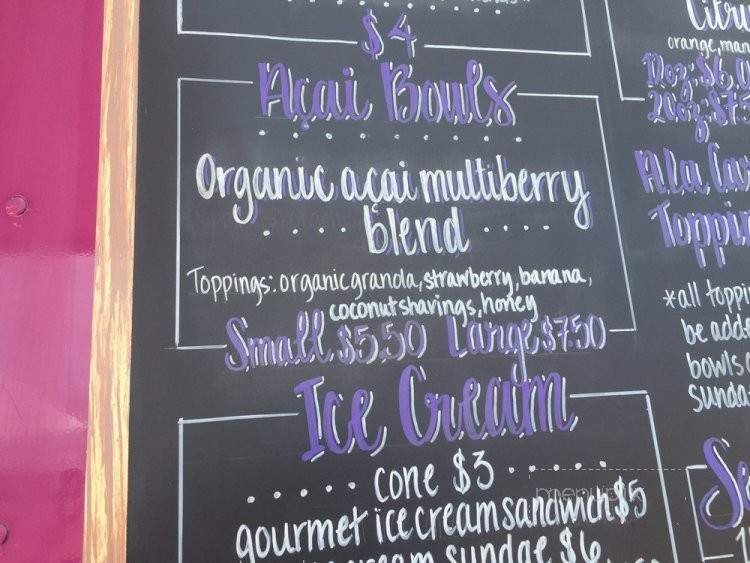 $4
Açai Bowls
Organic açai multiberry
blend
Toppings: organic granola, strawberry, banana,
coconut shavings, honey
Small $5.50 Large $7.50
Ice Cream
cone $3
gourmet ice cream sandwich $5
cream sundae $6
orange,
12oz $6
20oz $7.5
Ala
*all
be
bowls